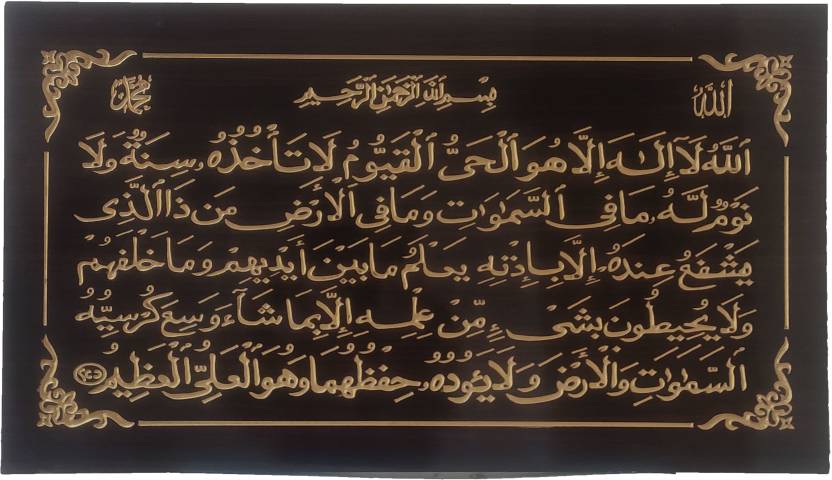 الله
بِسْمِ اللهِ الرَّحْمٰنِ الرَّحِيمِ
محمد
ٱللَّهُ لَآ إِلَـٰهَ إِلَّا هُوَ ٱلْحَىُّ ٱلْقَيُّومُ لَا تَأْخُذُهُۥ سِنَةٌ وَلَا
نَوْمٌ لَّهُۥ مَا فِى ٱلسَّمَـٰوَٰتِ وَمَا فِى ٱلْأَرْضِ مَن ذَا ٱلَّذِى
يَشْفَعُ عِندَهُۥٓ إِلَّا بِإِذْنِهِ يَعْلَمُ مَا بَيْنَ أَيْدِيهِمْ وَمَا خَلْفَهُمْ
وَلَا يُحِيطُونَ بِشَىْءٍ مِّنْ عِلْمِهِ إِلَّا بِمَا شَآءَ وَسِعَ كُرْسِيُّهُ
ٱلسَّمَـٰوَٰتِ وَٱلْأَرْضَ وَلَا يَـُٔودُهُۥ حِفْظُهُمَا وَهُوَ ٱلْعَلِىُّ ٱلْعَظِيمُ